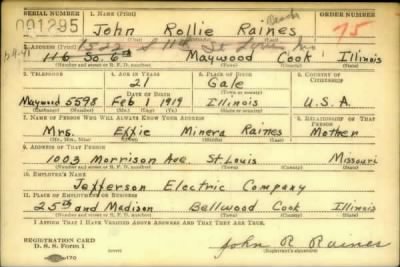 SERIAL NUMBER 1. NAME (Print) ORDER NUMBER
001295 John Rollie Raines 75
(First) (Middle) (Last)
2. ADDRESS (Print)
116 So. 6th Maywood Cook Illinois
(Number and street or R. F. D. number) (Town) (County) (State)
3. TELEPHONE 4. AGE IN YEARS 5. PLACE OF BIRTH 6. COUNTRY OF CITIZENSHIP
21 Gale
DATE OF BIRTH (Town or county)
Maywood 5598 Feb 1 1919 Illinois U.S.A.
(Exchange) (Number) (Mo.) (Day) (Yr.) (State or country)
7. NAME OF PERSON WHO WILL ALWAYS KNOW YOUR ADDRESS 8. RELATIONSHIP OF THAT PERSON
Mrs. Effie Minera Raines Mother
(Mr., Mrs., Miss) (First) (Middle) (Last)
9. ADDRESS OF THAT PERSON
1003 Morrison Ave. St Louis Missouri
(Number and street or R. F. D. number) (Town) (County) (State)
10. EMPLOYER'S NAME
Jefferson Electric Company
11. PLACE OF EMPLOYMENT OR BUSINESS
25th and Madison Bellwood Cook Illinois
(Number and street or R. F. D. number) (Town) (County) (State)
I AFFIRM THAT I HAVE VERIFIED ABOVE ANSWERS AND THAT THEY ARE TRUE.
REGISTRATION CARD
D. S. S. FORM 1 John R Raines
(Registrant's signature)